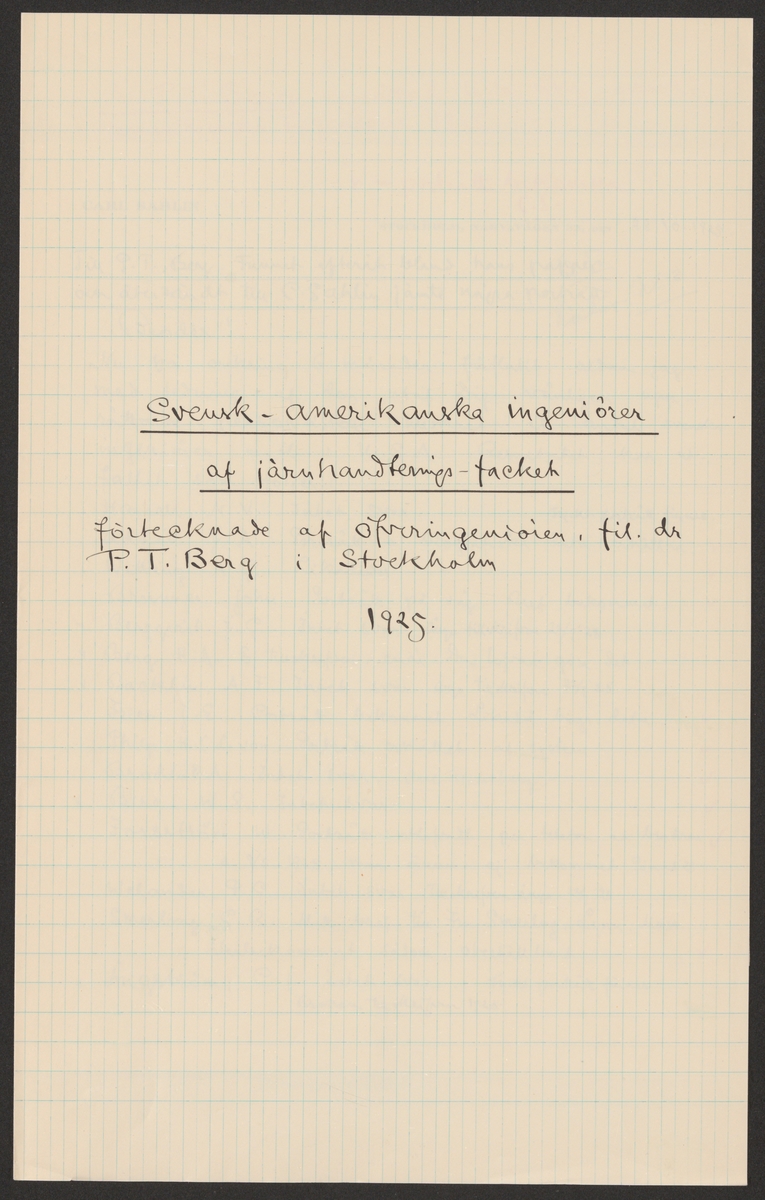 Svensk-amerikanska ingeniörer
af järnhandterings-facket
förtecknade af öfveringeniören, fil. dr
P. T. Berg i Stockholm
1925.